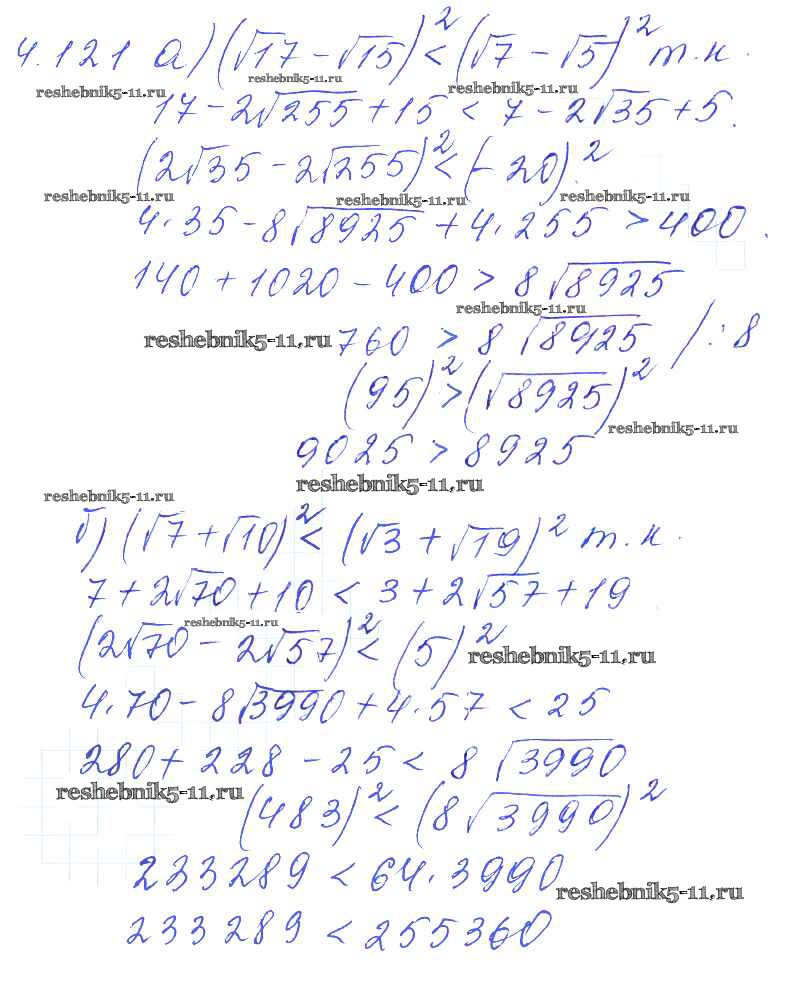 4.121 а) (√17 - √15)² < (√7 - √5)² т.к.
reshebnik5-11.ru reshebnik5-11.ru reshebnik5-11.ru
17 - 2√255 + 15 < 7 - 2√35 + 5.
(2√35 - 2√255)² < (-20)²
reshebnik5-11.ru reshebnik5-11.ru reshebnik5-11.ru
4·35 - 8√8925 + 4·255 > 400.
140 + 1020 - 400 > 8√8925
reshebnik5-11.ru
reshebnik5-11.ru 760 > 8√8925 /:8
(95)² > (√8925)²
reshebnik5-11.ru
9025 > 8925
reshebnik5-11.ru
reshebnik5-11.ru
б) (√7 + √10)² < (√3 + √19)² т.к.
7 + 2√70 + 10 < 3 + 2√57 + 19
reshebnik5-11.ru
(2√70 - 2√57)² < (5)²
reshebnik5-11.ru
4·70 - 8√3990 + 4·57 < 25
280 + 228 - 25 < 8√3990
reshebnik5-11.ru
(483)² < (8√3990)²
233289 < 64·3990
reshebnik5-11.ru
233289 < 255360